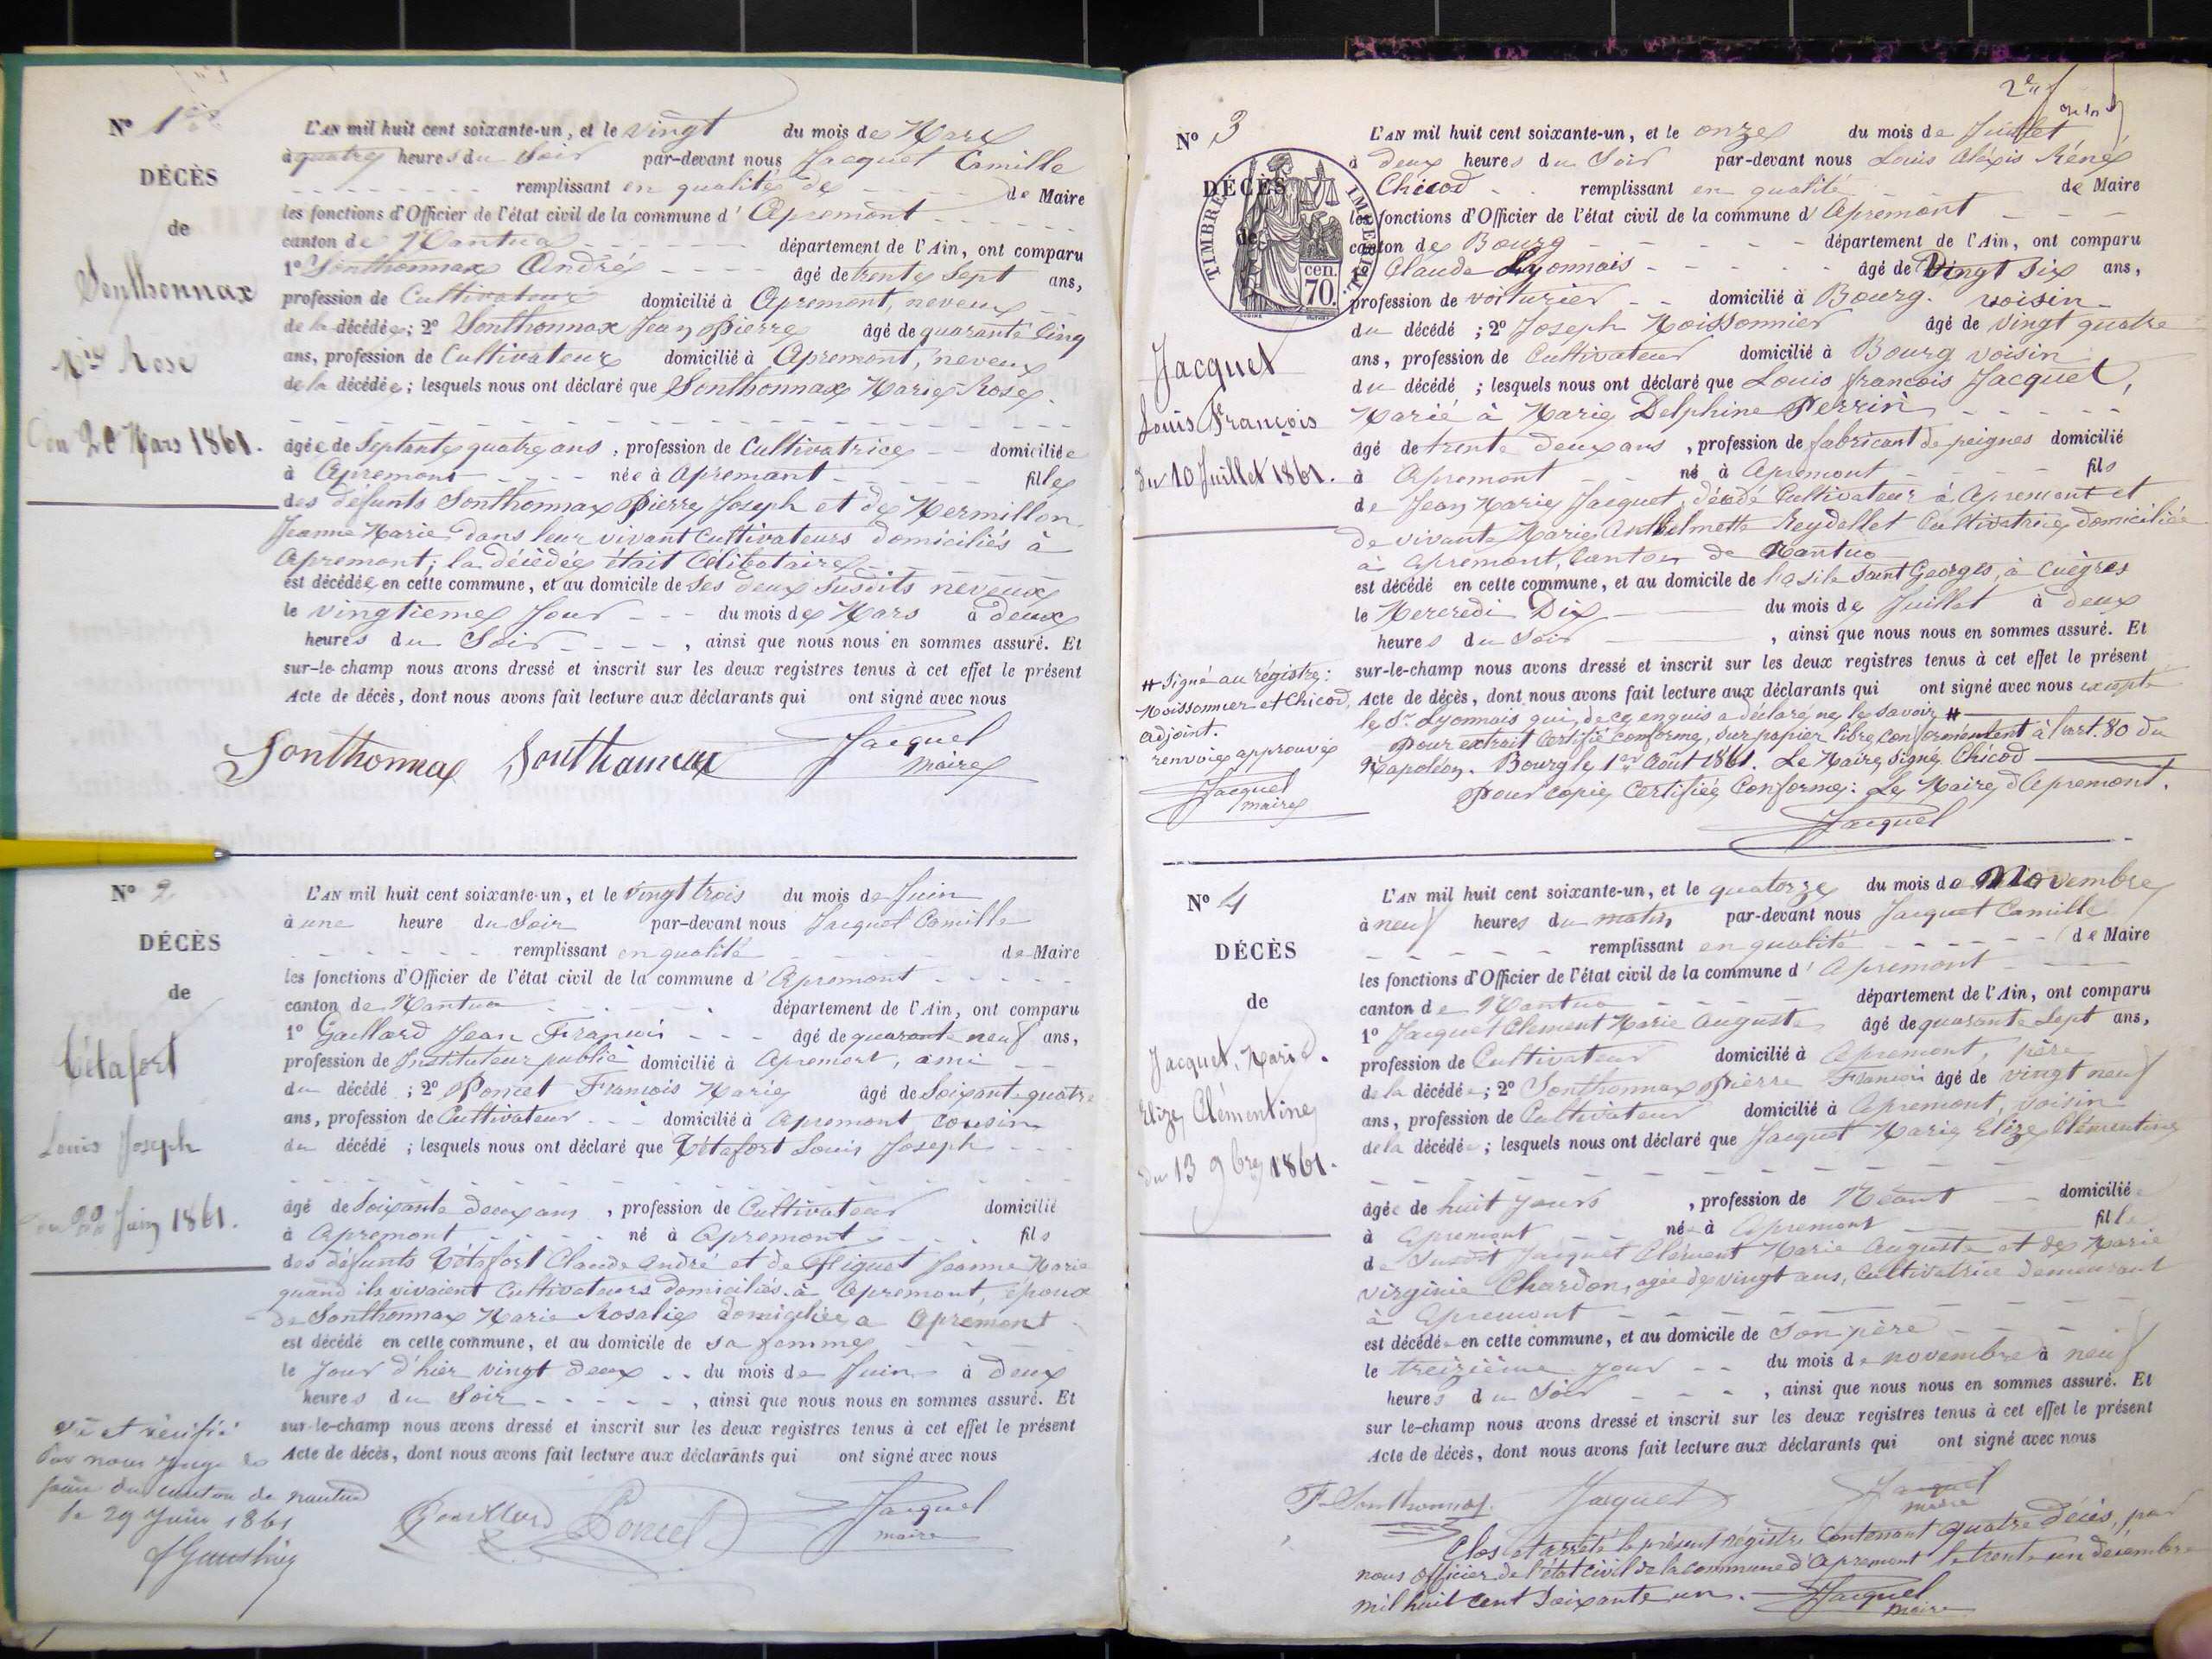 N° 1er
DÉCÈS
de
Sonthonnax
Mie Rose
du 20 Mars 1861.
L'AN mil huit cent soixante-un, et le vingt du mois de Mars
à quatre heures du Soir par-devant nous Jacquet Camille
remplissant en qualité de de Maire
les fonctions d'Officier de l'état civil de la commune d'Apremont
canton de Nantua département de l'Ain, ont comparu
1° Sonthonnax André âgé de trente Sept ans,
profession de Cultivateur domicilié à Apremont, neveux
de la décédée; 2° Sonthonnax Jean Pierre âgé de quarante Cinq
ans, profession de Cultivateur domicilié à Apremont, neveux
de la décédée; lesquels nous ont déclaré que Sonthonnax Marie-Rose.
âgée de Septante quatre ans, profession de Cultivatrice domiciliée
à Apremont née à Apremant fille
des défunts Sonthonnax Pierre Joseph et de Mermillon
Jeanne Marie dans leur vivant Cultivateurs domiciliés à
Apremont; la décédée était Célibataire
est décédée en cette commune, et au domicile de Ses deux Susdits neveux
le vingtieme Jour du mois de Mars à deux
heures du Soir, ainsi que nous nous en sommes assuré. Et
sur-le-champ nous avons dressé et inscrit sur les deux registres tenus à cet effet le présent
Acte de décès, dont nous avons fait lecture aux déclarants qui ont signé avec nous
Sonthonnax Sonthonnax Jacquet
maire
N° 2.
DÉCÈS
de
Tétafort
Louis Joseph
du 22 Juin 1861.
L'AN mil huit cent soixante-un, et le vingt trois du mois de Juin
à une heure du Soir par-devant nous Jacquet Camille
remplissant en qualité de Maire
les fonctions d'Officier de l'état civil de la commune d'Apremont
canton de Nantua département de l'Ain, ont comparu
1° Gaillard Jean François âgé de quarante neuf ans,
profession de Instituteur public domicilié à Apremont, ami
du décédé; 2° Poncet François Marie âgé de Soixante quatre
ans, profession de Cultivateur domicilié à Apremont cousin
du décédé; lesquels nous ont déclaré que Tétafort Louis Joseph
âgé de Soixante deux ans, profession de Cultivateur domicilié
à Apremont né à Apremont fils
des défunts Tétafort Claude André et de Fliguet Jeanne Marie
quand ils vivaient Cultivateurs domiciliés à Apremont, époux
de Sonthonnax Marie Rosalie domiciliée a Apremont
est décédé en cette commune, et au domicile de sa femme
le Jour d'hier vingt deux du mois de Juin à deux
heures du Soir, ainsi que nous nous en sommes assuré. Et
sur-le-champ nous avons dressé et inscrit sur les deux registres tenus à cet effet le présent
Acte de décès, dont nous avons fait lecture aux déclarants qui ont signé avec nous
vu et vérifié
Par nous Juge de
paix du canton de nantua
le 29 Juin 1861
Gaillard Poncet Jacquet
maire
N° 3
DÉCÈS
de
TIMBRE IMPERIAL
cen.
70.
Jacquet
Louis François
du 10 Juillet 1861.
L'AN mil huit cent soixante-un, et le onze du mois de Juillet
à deux heures du Soir par-devant nous Louis Aléxis Réné
Chicod remplissant en qualité de Maire
les fonctions d'Officier de l'état civil de la commune d'Apremont
canton de Bourg département de l'Ain, ont comparu
1° Claude Lyonnais âgé de Vingt Six ans,
profession de voiturier domicilié à Bourg. voisin
du décédé; 2° Joseph Moissonnier âgé de vingt quatre
ans, profession de Cultivateur domicilié à Bourg voisin
du décédé; lesquels nous ont déclaré que Louis françois Jacquet,
Marié à Marie Delphine Perrin
âgé de trente deux ans, profession de fabricant de peignes domicilié
à Apremont né à Apremont fils
de Jean Marie Jacquet, décédé Cultivateur à Apremont et
de vivante Marie Anthelmette Reydellet Cultivatrice domiciliée
à Apremont, Canton de Nantua
est décédé en cette commune, et au domicile de l'asile Saint Georges, à Cuègres
le Mercredi Dix du mois de Juillet à deux
heures du Soir, ainsi que nous nous en sommes assuré. Et
sur-le-champ nous avons dressé et inscrit sur les deux registres tenus à cet effet le présent
Acte de décès, dont nous avons fait lecture aux déclarants qui ont signé avec nous excepté
le Sr. Lyonnais qui, de ce enquis a déclaré ne le savoir #
Pour extrait Certifié conforme, sur papier libre, conformément à l'art. 80 du
Napoléon. Bourg le 1er Août 1861. Le Maire, signé, Chicod
Pour copie Certifiée Conforme: Le Maire d'Apremont.
Jacquet
# Signé au régistre:
Moissonnier et Chicod,
adjoint.
renvoie approuvé
Jacquet
maire
N° 4
DÉCÈS
de
Jacquet, Marie.
Elize, Clémentine
du 13 9bre 1861.
L'AN mil huit cent soixante-un, et le quatorze du mois de Novembre
à neuf heures du matin par-devant nous Jacquet Camille
remplissant en qualité de Maire
les fonctions d'Officier de l'état civil de la commune d'Apremont
canton de Nantua département de l'Ain, ont comparu
1° Jacquet Clement Marie Auguste âgé de quarante Sept ans,
profession de Cultivateur domicilié à Apremont, père
de la décédée; 2° Sonthonnax Pierre François âgé de vingt neuf
ans, profession de Cultivateur domicilié à Apremont, voisin
de la décédée; lesquels nous ont déclaré que Jacquet Marie Elize Clémentine
âgée de huit jours, profession de Néant domiciliée
à Apremont née à Apremont fille
de Susdit Jacquet Clément Marie Auguste et de Marie
virginie Chardon, agée de vingt ans, Cultivatrice demeurant
à Apremont
est décédée en cette commune, et au domicile de Son père
le treizième jour du mois de novembre à neuf
heures du Soir, ainsi que nous nous en sommes assuré. Et
sur le-champ nous avons dressé et inscrit sur les deux registres tenus à cet effet le présent
Acte de décès, dont nous avons fait lecture aux déclarants qui ont signé avec nous
F. Sonthonnax Jacquet Jacquet
maire
Clos et arrêté le présent régistre Contenant quatre Décès, par
nous officier de l'état civil de la commune d'Apremont le trente un décembre
mil huit cent Soixante un. Jacquet
maire